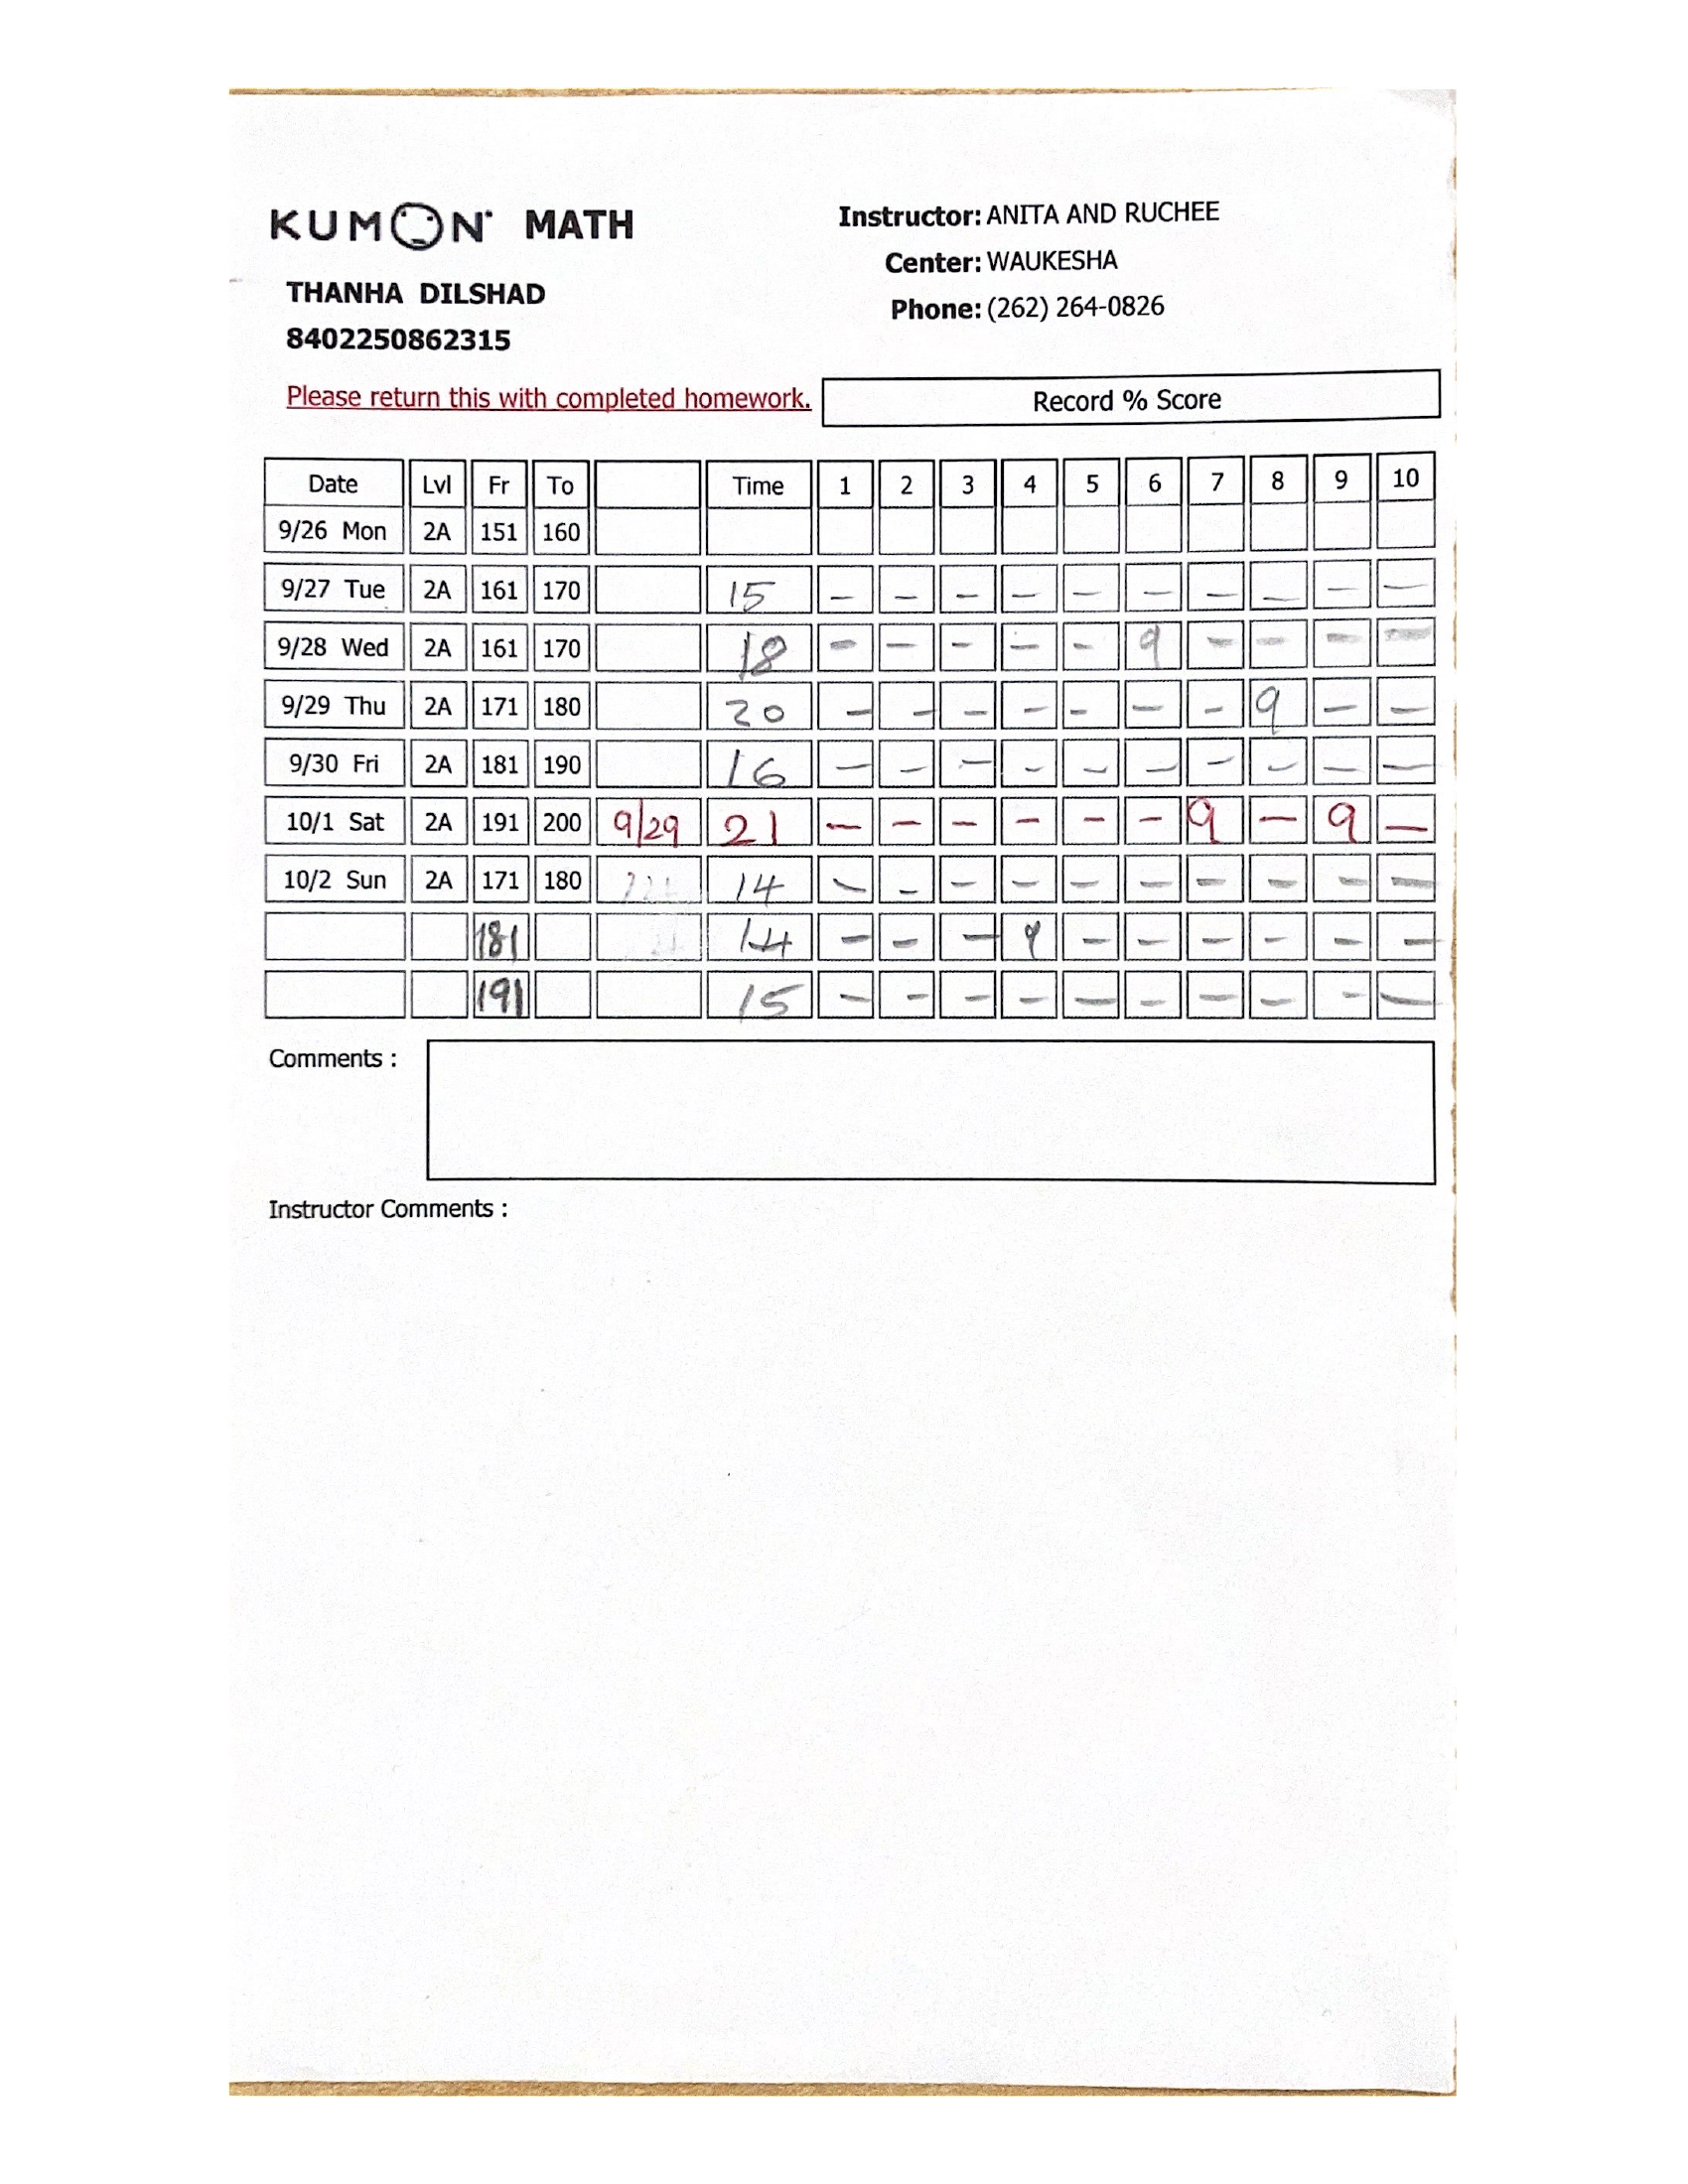 KUMON MATH
Instructor: ANITA AND RUCHEE
Center: WAUKESHA
THANHA DILSHAD
Phone: (262) 264-0826
8402250862315
Please return this with completed homework.
Record % Score
Date Lvl Fr To Time 1 2 3 4 5 6 7 8 9 10
9/26 Mon 2A 151 160
9/27 Tue 2A 161 170 15 - - - - - - - - - -
9/28 Wed 2A 161 170 18 - - - - - 9 - - - -
9/29 Thu 2A 171 180 20 - - - - - - - 9 - -
9/30 Fri 2A 181 190 16 - - - - - - - - - -
10/1 Sat 2A 191 200 9/29 21 - - - - - - 9 - 9 -
10/2 Sun 2A 171 180 14 - - - - - - - - - -
181 14 - - - 9 - - - - - -
191 15 - - - - - - - - - -
Comments :
Instructor Comments :